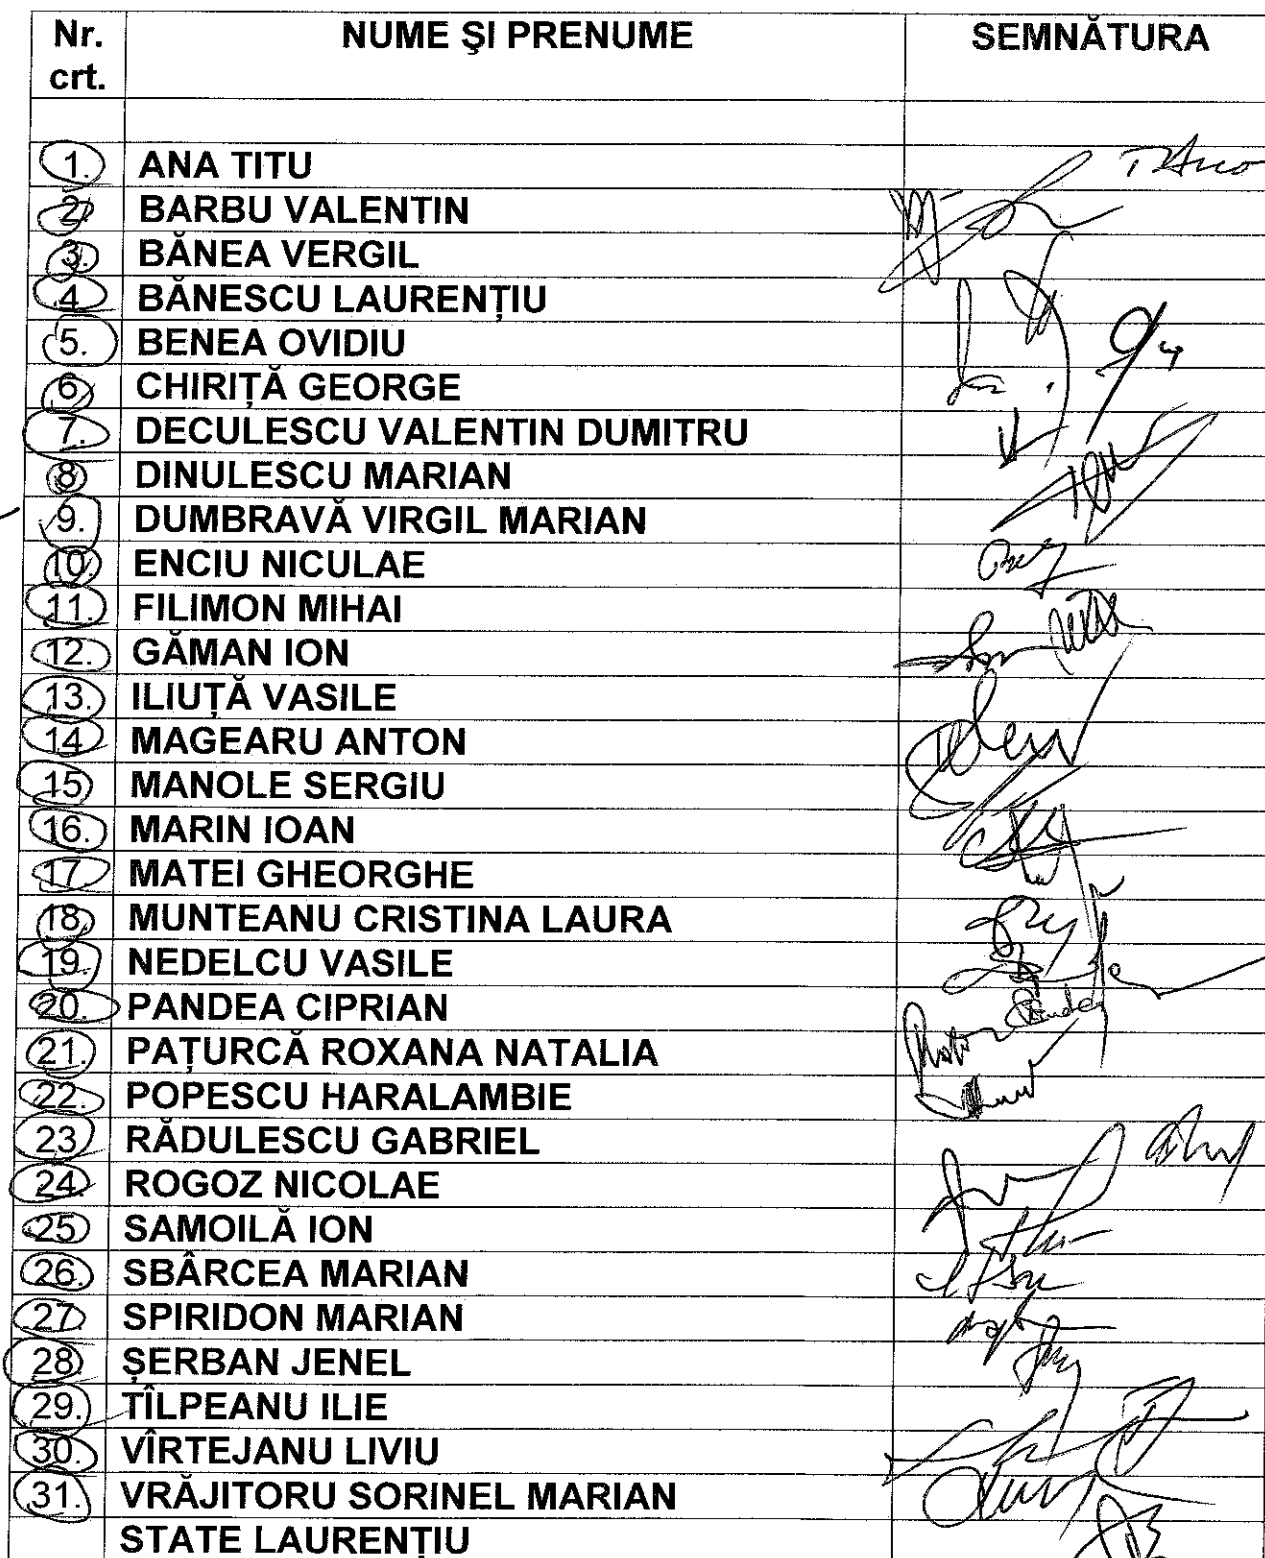 Nr. crt. NUME ŞI PRENUME SEMNĂTURA
1. ANA TITU
2. BARBU VALENTIN
3. BĂNEA VERGIL
4 BĂNESCU LAURENŢIU
5. BENEA OVIDIU
6. CHIRIŢĂ GEORGE
7. DECULESCU VALENTIN DUMITRU
8. DINULESCU MARIAN
9. DUMBRAVĂ VIRGIL MARIAN
10. ENCIU NICULAE
11. FILIMON MIHAI
12. GĂMAN ION
13. ILIUŢĂ VASILE
14 MAGEARU ANTON
15 MANOLE SERGIU
16. MARIN IOAN
17 MATEI GHEORGHE
18. MUNTEANU CRISTINA LAURA
19. NEDELCU VASILE
20. PANDEA CIPRIAN
21. PAŢURCĂ ROXANA NATALIA
22. POPESCU HARALAMBIE
23 RĂDULESCU GABRIEL
24. ROGOZ NICOLAE
25 SAMOILĂ ION
26. SBÂRCEA MARIAN
27 SPIRIDON MARIAN
28 ŞERBAN JENEL
29. TÎLPEANU ILIE
30. VÎRTEJANU LIVIU
31. VRĂJITORU SORINEL MARIAN
STATE LAURENŢIU